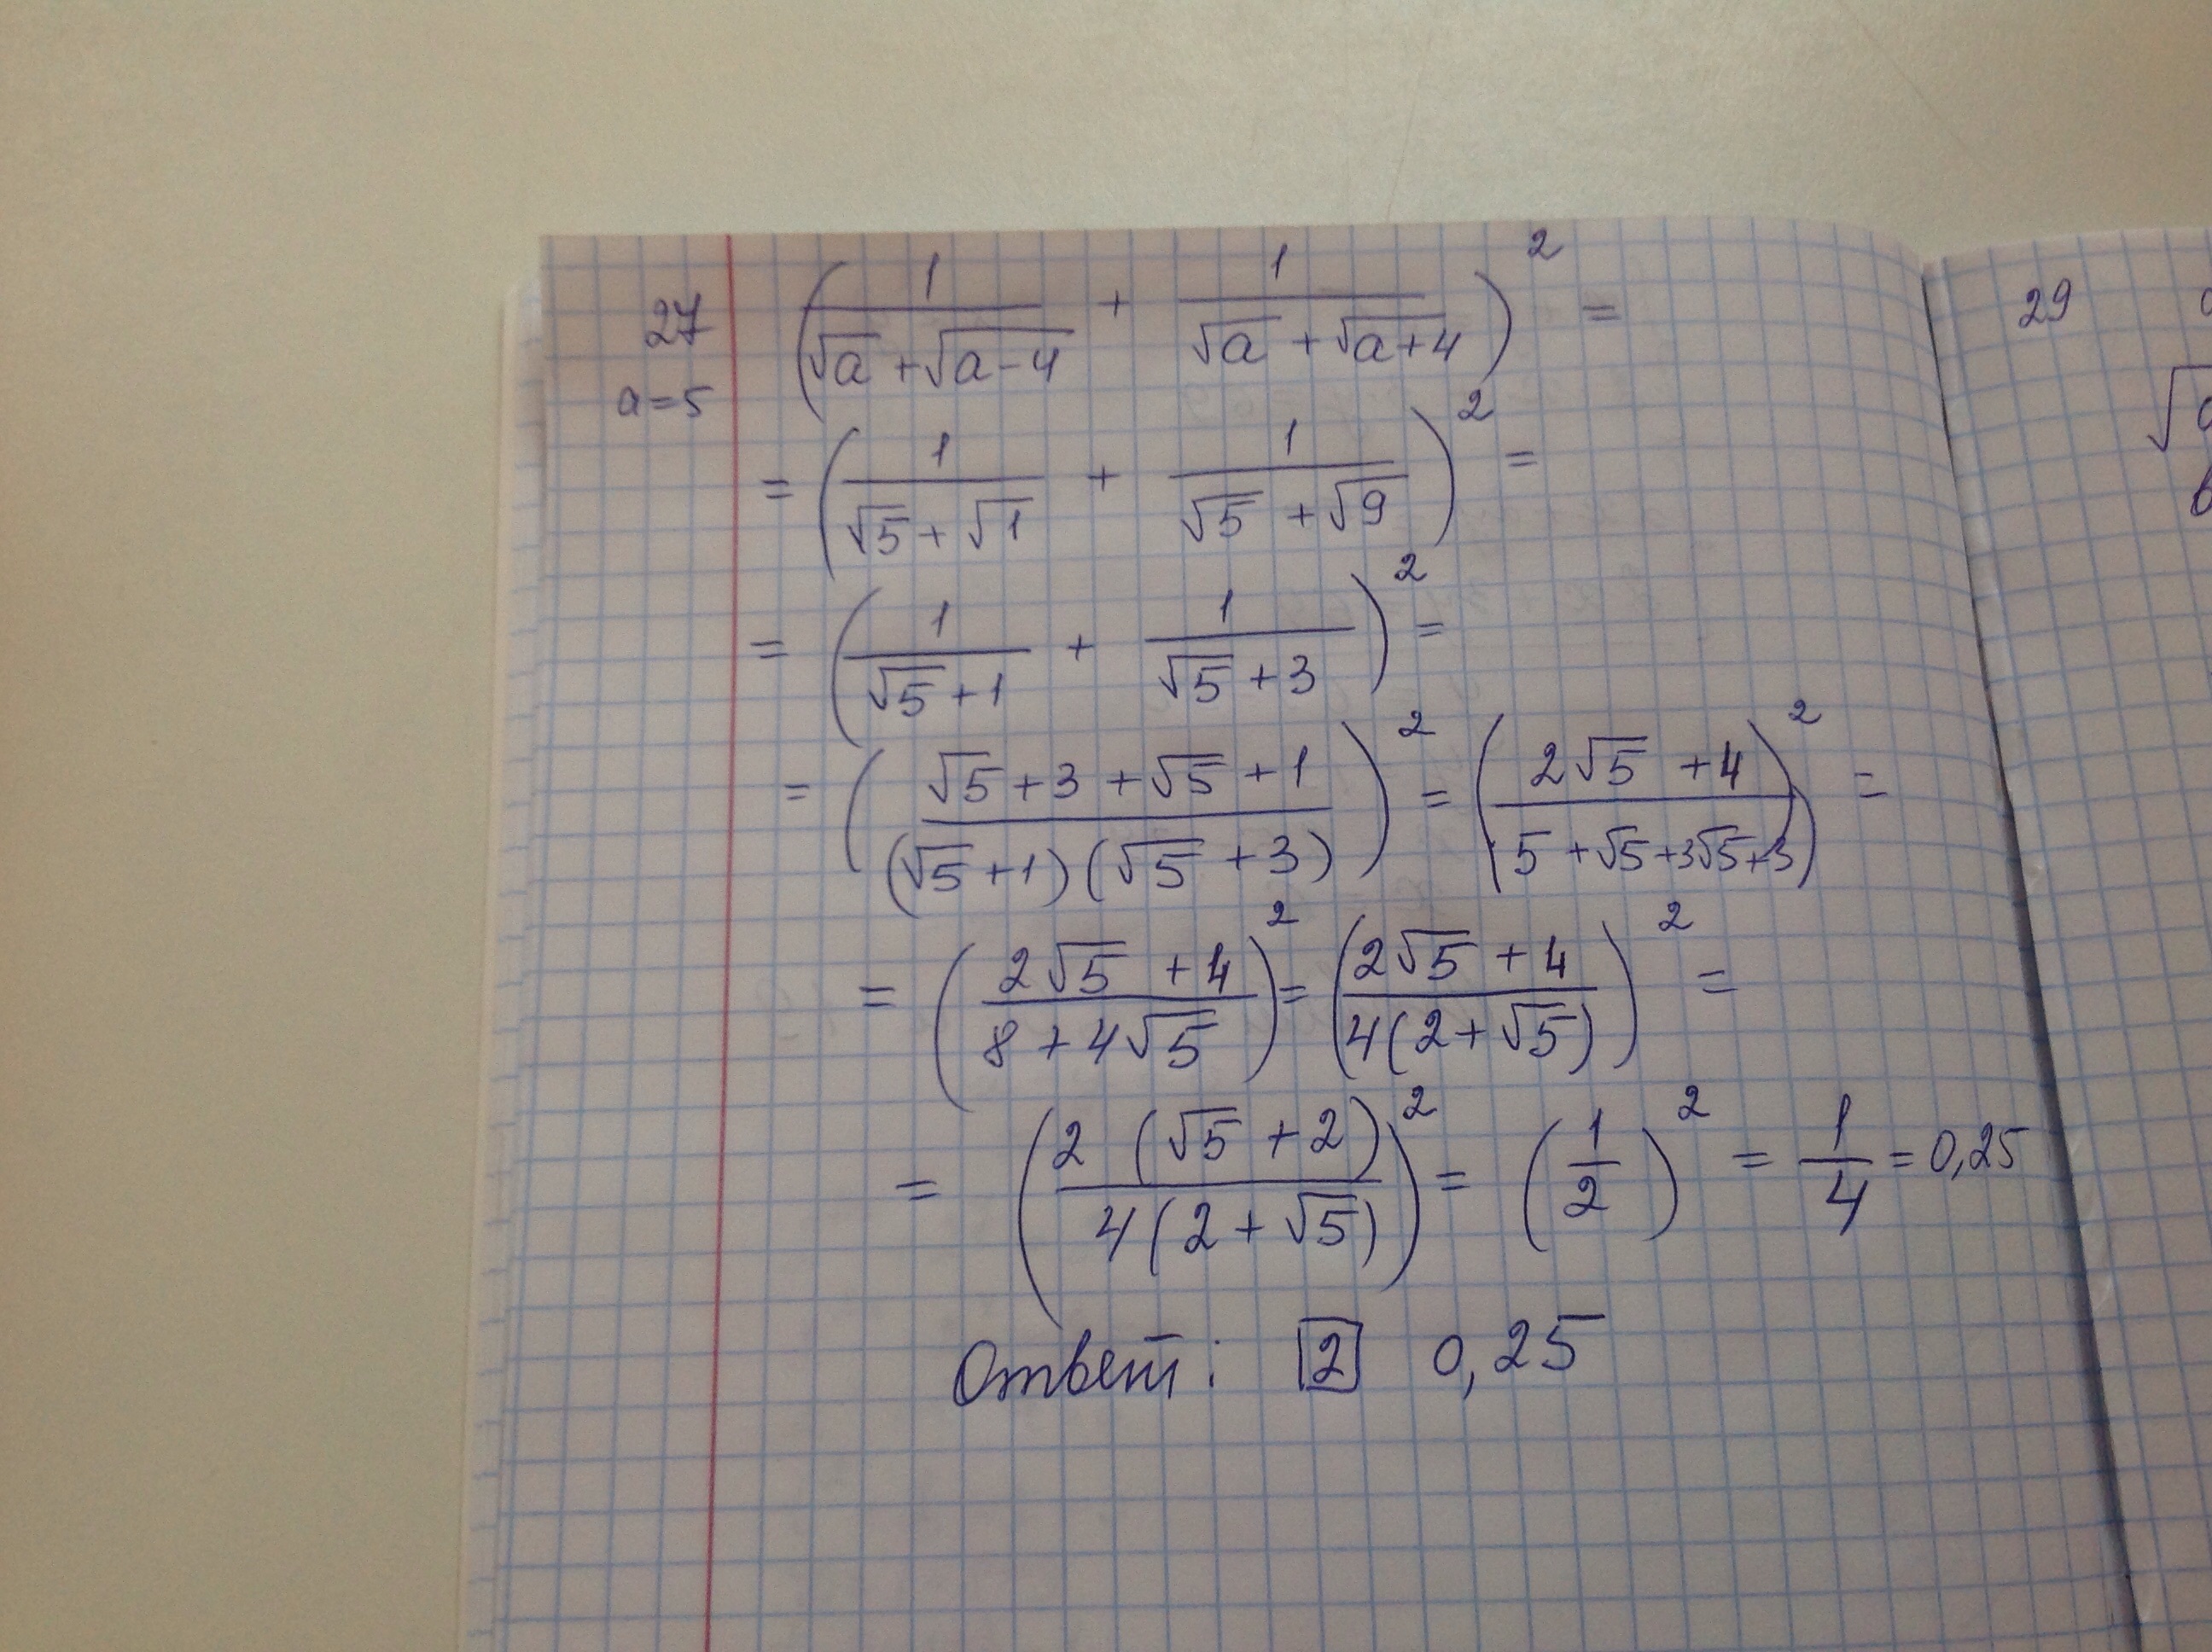 27 (1/(√a + √(a-4)) + 1/(√a + √(a+4)))² =
a = 5
= (1/(√5 + √1) + 1/(√5 + √9))² =
= (1/(√5 + 1) + 1/(√5 + 3))² =
= ((√5 + 3 + √5 + 1)/((√5 + 1)(√5 + 3)))² = ((2√5 + 4)/(5 + √5 + 3√5 + 3))² =
= ((2√5 + 4)/(8 + 4√5))² = ((2√5 + 4)/(4(2 + √5)))² =
= (2(√5 + 2)/(4(2 + √5)))² = (1/2)² = 1/4 = 0,25
Ответ: 2 0,25
29